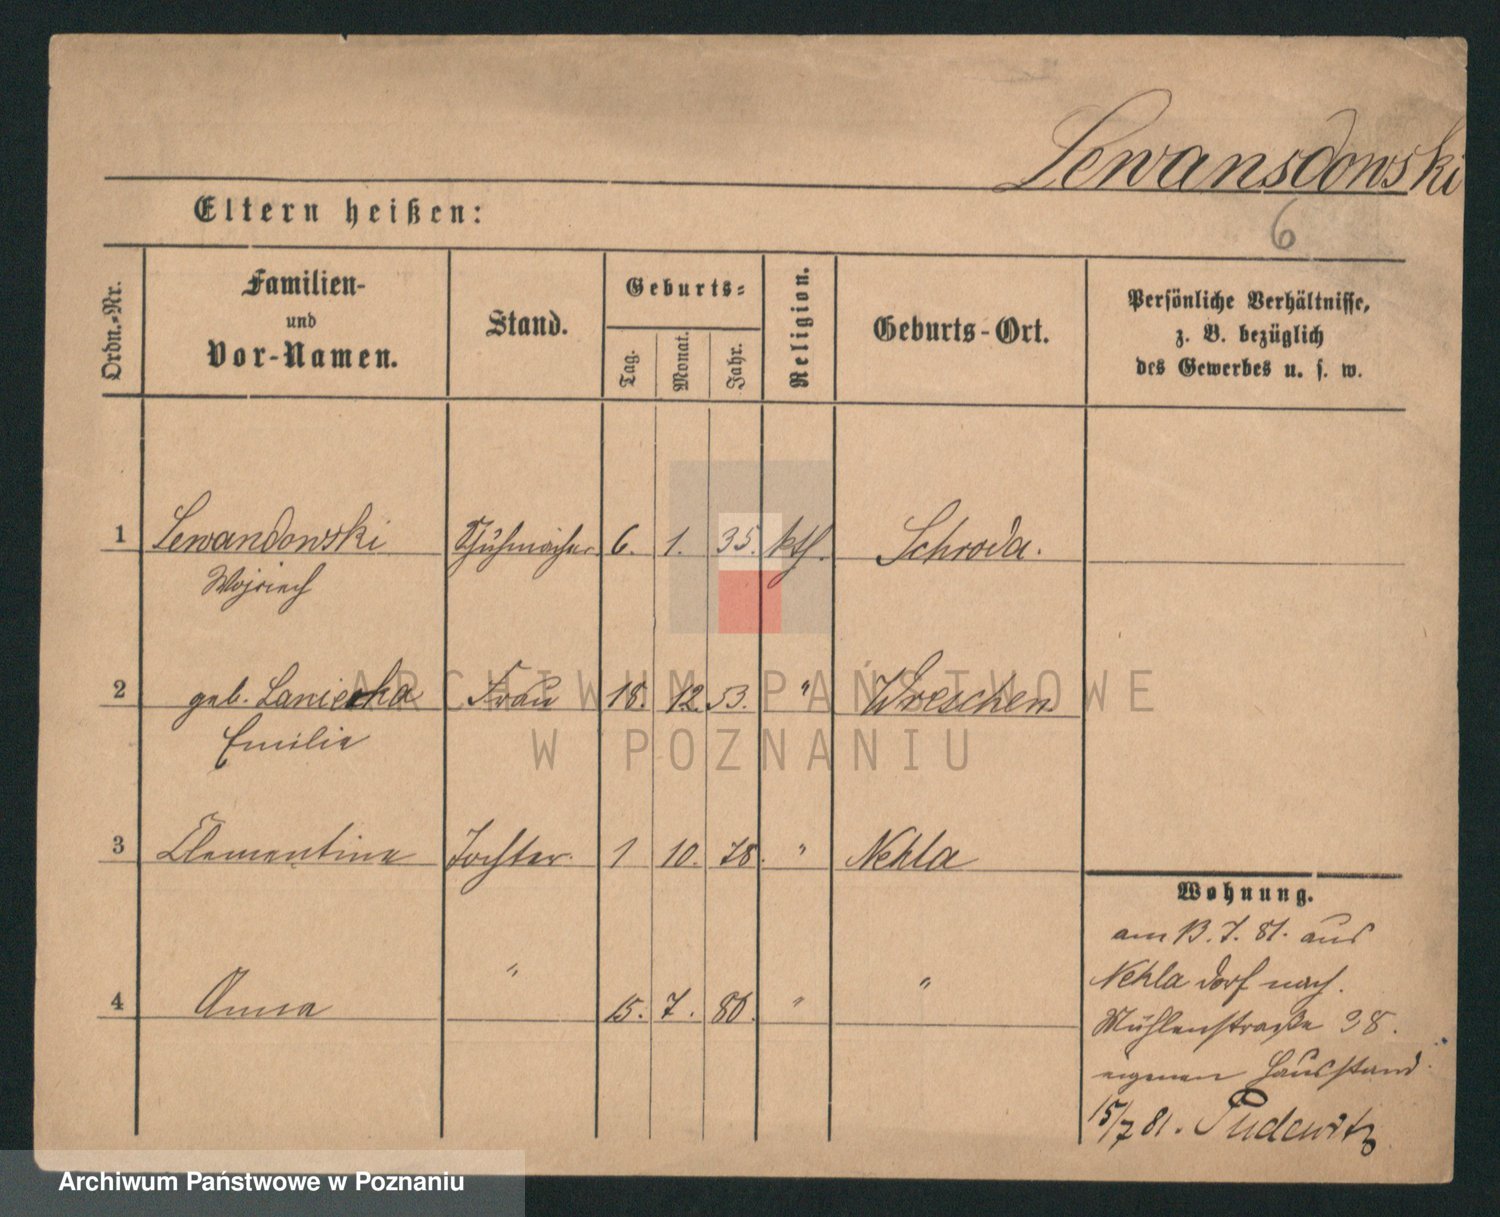 Lewandowski
6
Eltern heißen:
Ordn.-Nr.
Familien-
und
Vor-Namen.
Stand.
Geburts-
Tag.
Monat.
Jahr.
Religion.
Geburts-Ort.
Persönliche Verhältnisse,
z. B. bezüglich
des Gewerbes u. s. w.
1 Lewandowski Schuhmacher 6. 1. 35. kth. Schroda.
Wojciech
2 geb. Laniecka Frau 18. 12. 53. " Wreschen
Emilie
3 Clementine Tochter. 1 10. 78. " Nekla
4 Anna " 15. 7. 80. " "
Wohnung.
am 13. 7. 81. aus
Nekla dorf nach.
Mühlenstraße 38.
eigenen Hausstand.
15/7 81. Pudewitz
ARCHIWUM PAŃSTWOWE
W POZNANIU
Archiwum Państwowe w Poznaniu